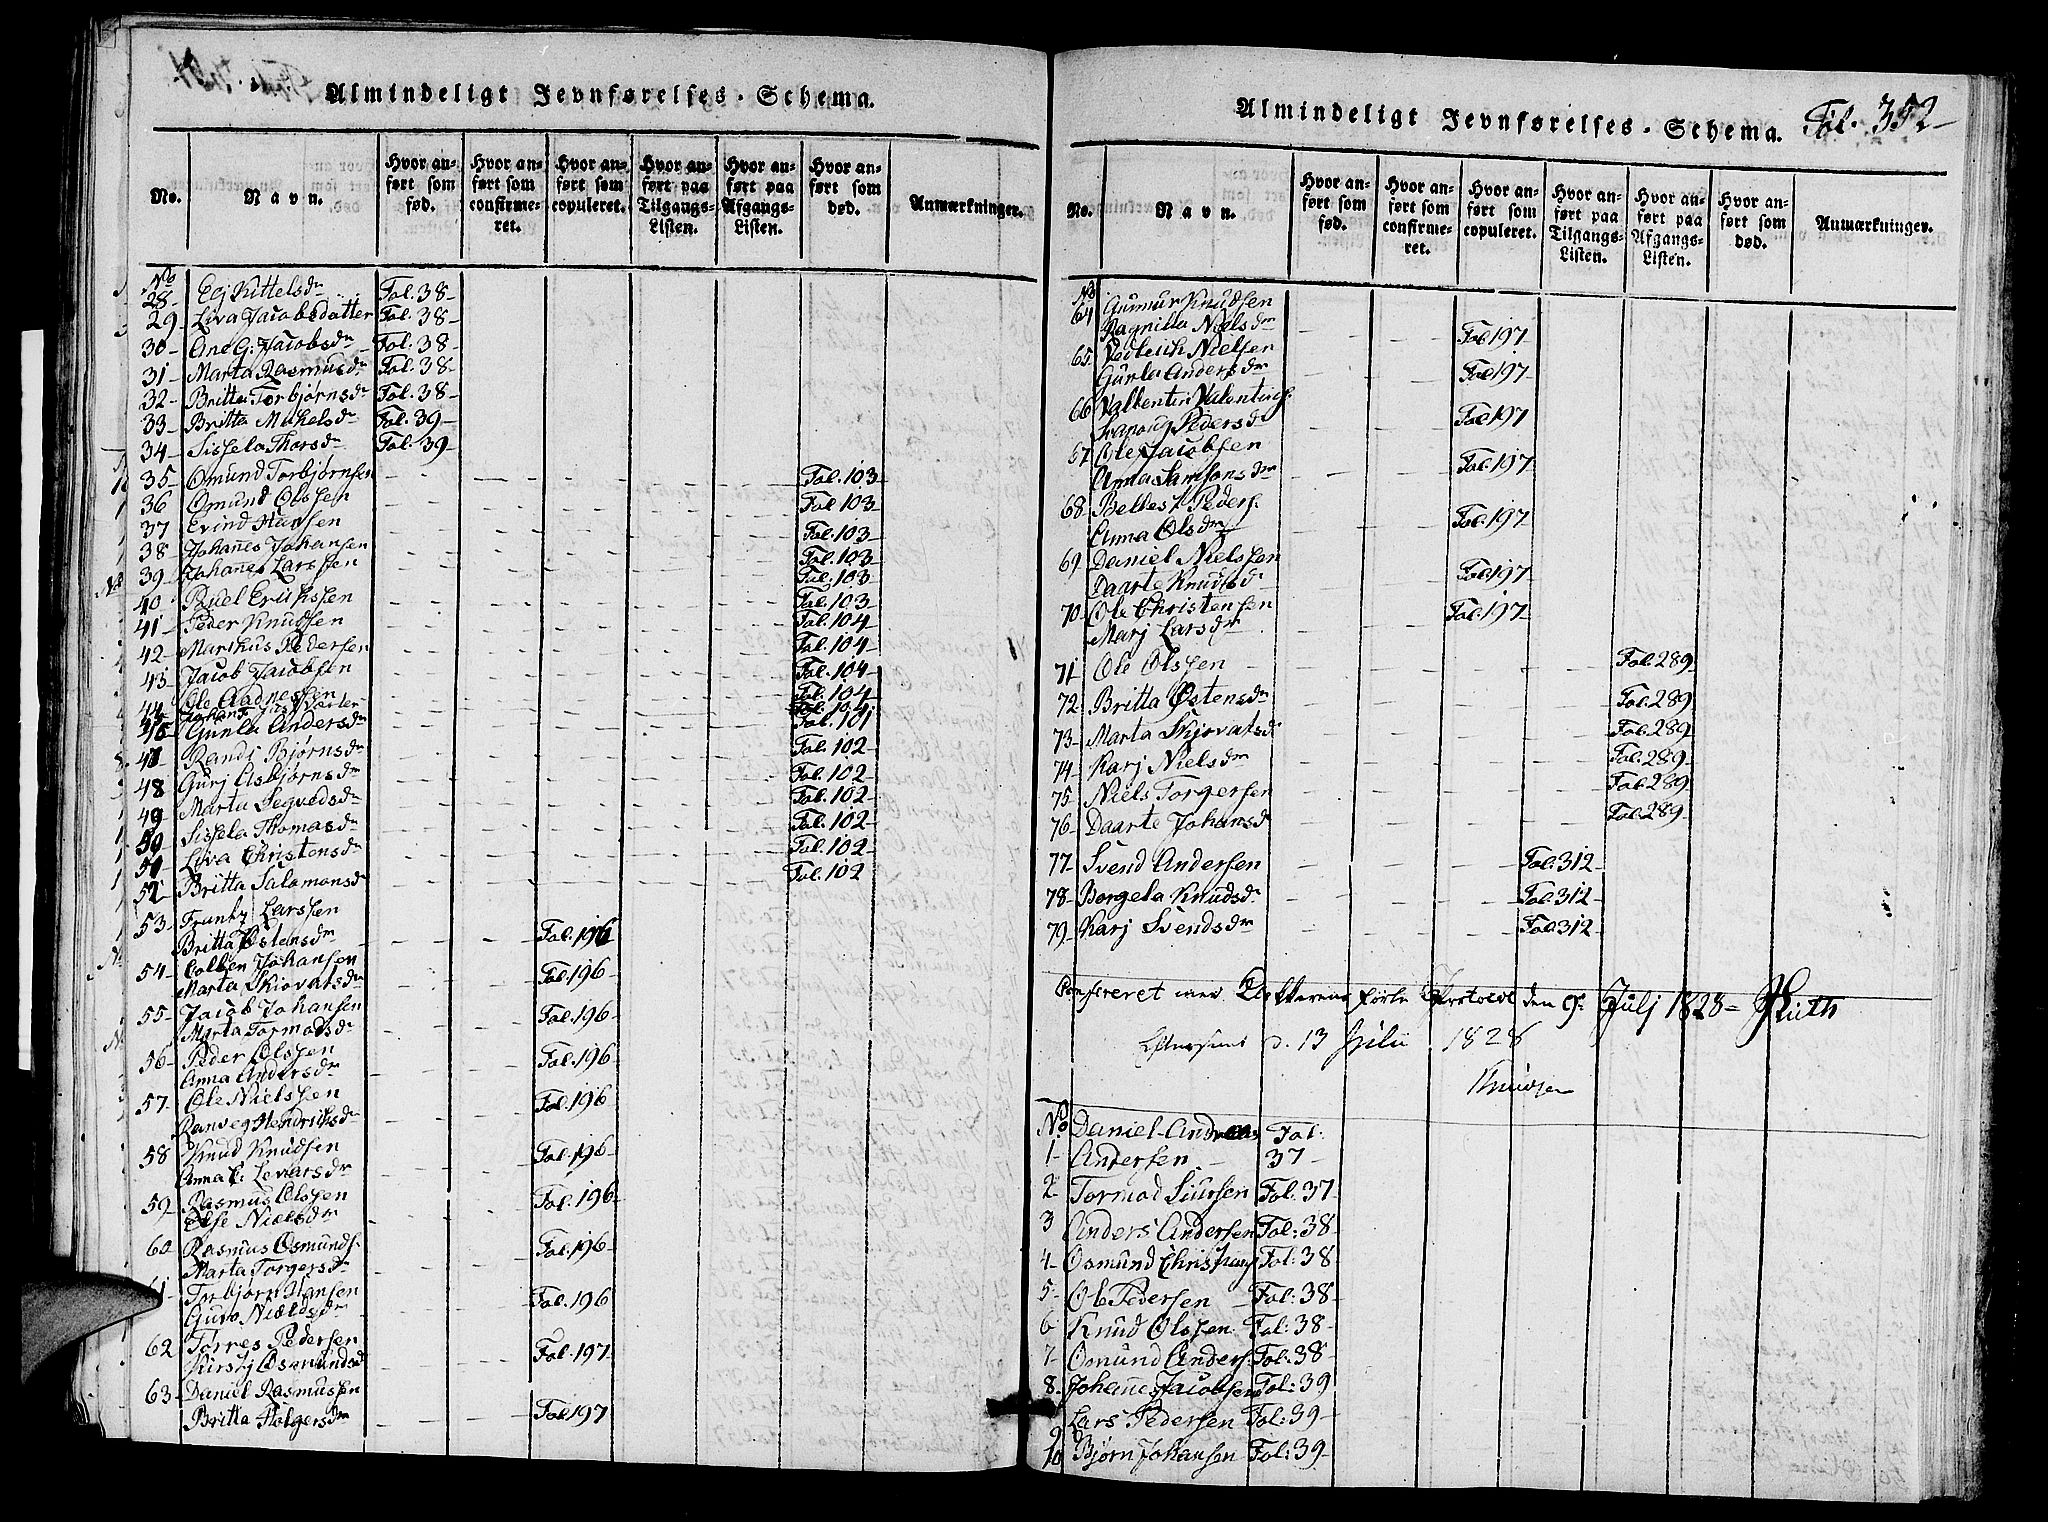 Almindeligt Jevnførelses-Schema.
No. Navn. Hvor anført som fød. Hvor anført som confirmeret. Hvor anført som copuleret. Hvor anført paa Tilgangs-Listen. Hvor anført paa Afgangs-Listen. Hvor anført som død. Anmærkninger.
No
28- Egj Kittelsdr Fol. 38-
29- Liva Jacobsdatter Fol. 38-
30- Ane G: Jacobsdr Fol. 38-
31- Marta Rasmusdr Fol. 38-
32- Britta Torbjørnsdr Fol. 38-
33- Britta Mikelsdr Fol. 39-
34- Sissela Thorsdr Fol. 39
35- Omund Torbjørnsen Fol. 103-
36 Omund Olssen Fol. 103
37 Evind Hansen Fol. 103-
38 Johanes Johansen Fol. 103
39- Johanes Larssen Fol. 103
40- Ruel Erikssen Fol. 103-
41- Peder Knudsen Fol. 104-
42- Markus Pedersen Fol. 104-
43- Jacob Jacobsen Fol. 104-
44- Ole Aadnessen Fol. 104-
45 Fol. 104
46 Gunla Andersdr Fol. 101
47 Randi Bjørnsdr Fol. 102-
48 Gurj Asbjørnsdr Fol. 102-
49- Marta Segvedsdr Fol. 102-
50- Sissela Thomasdr Fol. 102-
51 Liva Christensdr Fol. 102-
52- Britta Salamonsdr Fol. 102
53- Larssen
Britta Østensdr Fol. 196
54- Colben Johansen
Marta Skiovatsdr Fol. 196-
55- Jacob Johansen
Marta Tormodsdr Fol. 196-
56- Peder Olssen
Anna Andersdr Fol. 196
57- Ole Nielssen
Ranveg Hendriksdr Fol. 196
58 Knud Knudsen
Anna E: Levarsdr Fol. 196
59- Rasmus Olssen
Else Nielsdr Fol. 196-
60 Rasmus Osmunds:
Marta Torgersdr Fol. 196-
61- Torbjørn Hansen
Guro Nielsdr Fol. 196
62 Torres Pedersen
Kirstj Osmundsd Fol. 197
63- Daniel Rasmussen
Britta Holgersdr Fol. 197
Almindeligt Jevnførelses-Schema. Fol. 352-
No. Navn. Hvor anført som fød. Hvor anført som confirmeret. Hvor anført som copuleret. Hvor anført paa Tilgangs-Listen. Hvor anført paa Afgangs-Listen. Hvor anført som død. Anmærkninger.
No
64 Gunnur Knudsen
Ragnilla Nielsdr Fol. 197-
65 Nielsen
Gunla Andersdr Fol. 197
66 Vallentin Valentins:
Pedersdr Fol. 197
67 Ole Jacobsen
Anna Samsonsdr Fol. 197
68 Peders:
Anna Olsdr Fol. 197
69 Daniel Nielssen
Daarte Knudsdr Fol. 197
70- Ole Christensen
Marj Larsdr Fol. 197
71 Ole Olssen Fol. 289
72 Britta Østensdr Fol. 289-
73- Marta Skjovatsdr Fol. 289
74- Karj Nielsdr Fol. 289-
75 Niels Torgersen Fol. 289
76- Daarte Johansd Fol. 289
77- Svend Andersen Fol. 312-
78- Borgela Knudsdr Fol. 312
79- Karj Svendsdr Fol. 312
Confereret med Klokkerens første Protocol den 9: Julj 1828-
Eftersees d. 13 Julii 1828
Knudsen
No Daniel Andreas Fol:
1- Andersen 37-
2- Tormod Siursen Fol: 37-
3 Anders Andersen Fol: 38-
4- Osmund Fol: 38
5- Ole Pedersen Fol: 38-
6 Knud Olssen Fol: 38-
7- Omund Anders: Fol: 38-
8- Johanes Jacobsen Fol: 39
9 Lars Pedersen Fol: 39-
10 Bjørn Johansen Fol: 39-